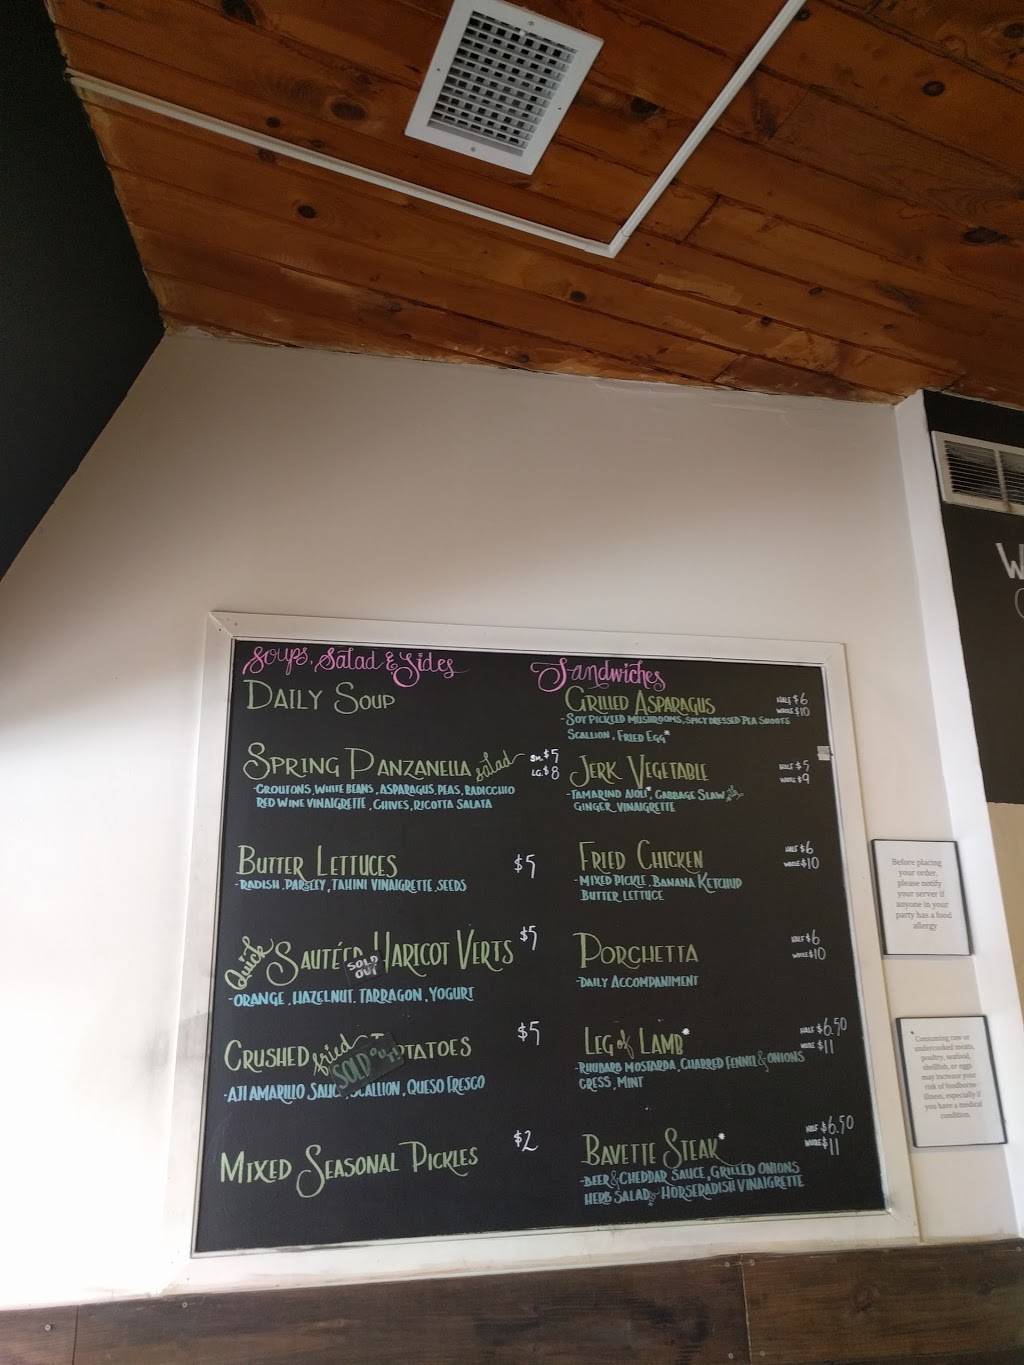 Soups, Salad & Sides
DAILY SOUP
SPRING PANZANELLA salad
SM. $5
LG. $8
-CROUTONS, WHITE BEANS, ASPARAGUS, PEAS, RADICCHIO
RED WINE VINAIGRETTE, CHIVES, RICOTTA SALATA
BUTTER LETTUCES $5
-RADISH, PARSLEY, TAHINI VINAIGRETTE, SEEDS
Quick SAUTÉED HARICOT VERTS $5
SOLD
OUT
-ORANGE, HAZELNUT, TARRAGON, YOGURT
CRUSHED fried POTATOES $5
SOLD OUT!
-AJI AMARILLO SAUCE, SCALLION, QUESO FRESCO
MIXED SEASONAL PICKLES $2
Sandwiches
GRILLED ASPARAGUS
HALF $6
WHOLE $10
-SOY PICKLED MUSHROOMS, SPICY DRESSED PEA SHOOTS
SCALLION, FRIED EGG*
JERK VEGETABLE
HALF $5
WHOLE $9
-TAMARIND AIOLI*, CABBAGE SLAW
GINGER VINAIGRETTE
FRIED CHICKEN
HALF $6
WHOLE $10
-MIXED PICKLE, BANANA KETCHUP
BUTTER LETTUCE
PORCHETTA
HALF $6
WHOLE $10
-DAILY ACCOMPANIMENT
LEG of LAMB*
HALF $6.50
WHOLE $11
-RHUBARB MOSTARDA, CHARRED FENNEL & ONIONS
CRESS, MINT
BAVETTE STEAK*
HALF $6.50
WHOLE $11
-BEER & CHEDDAR SAUCE, GRILLED ONIONS
HERB SALAD & HORSERADISH VINAIGRETTE
Before placing
your order,
please notify
your server if
anyone in your
party has a food
allergy
*Consuming raw or
undercooked meats,
poultry, seafood,
shellfish, or eggs
may increase your
risk of foodborne
illness, especially if
you have a medical
condition.